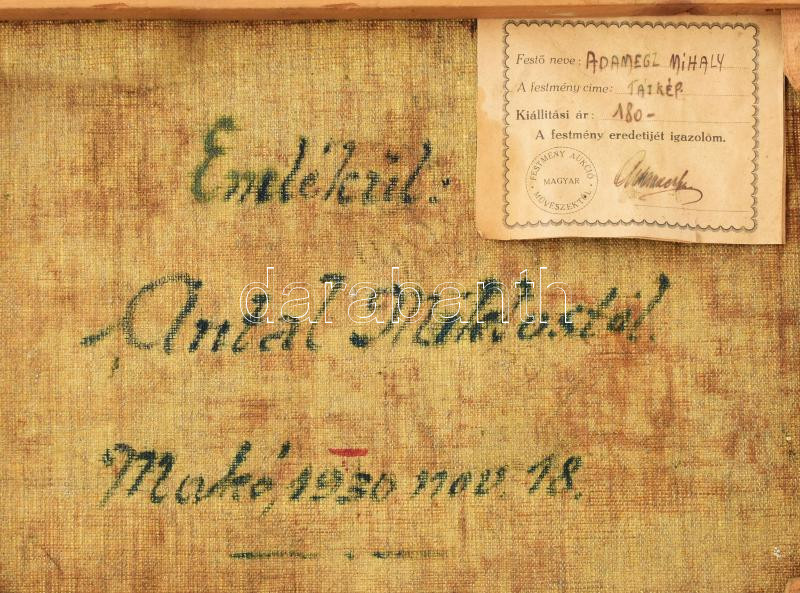 Festő neve: ADAMEGZ MIHALY
A festmény cime: TÁJKÉP.
Kiállitási ár: 180-
A festmény eredetijét igazolom.
FESTMÉNY AUKCIÓ
MAGYAR
MŰVÉSZEKTŐL
Emlékül:
Antal Miklóstól.
darabanth
Makó, 1930 nov. 18.